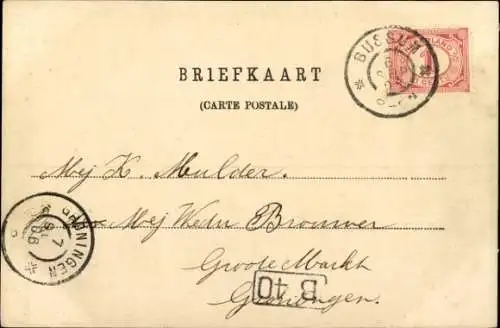 BUSSUM
BRIEFKAART
(CARTE POSTALE)
Mej K. Mulder.
Mej Wedn Brouwer
Groote Markt
Groningen.
B 40
GRONINGEN